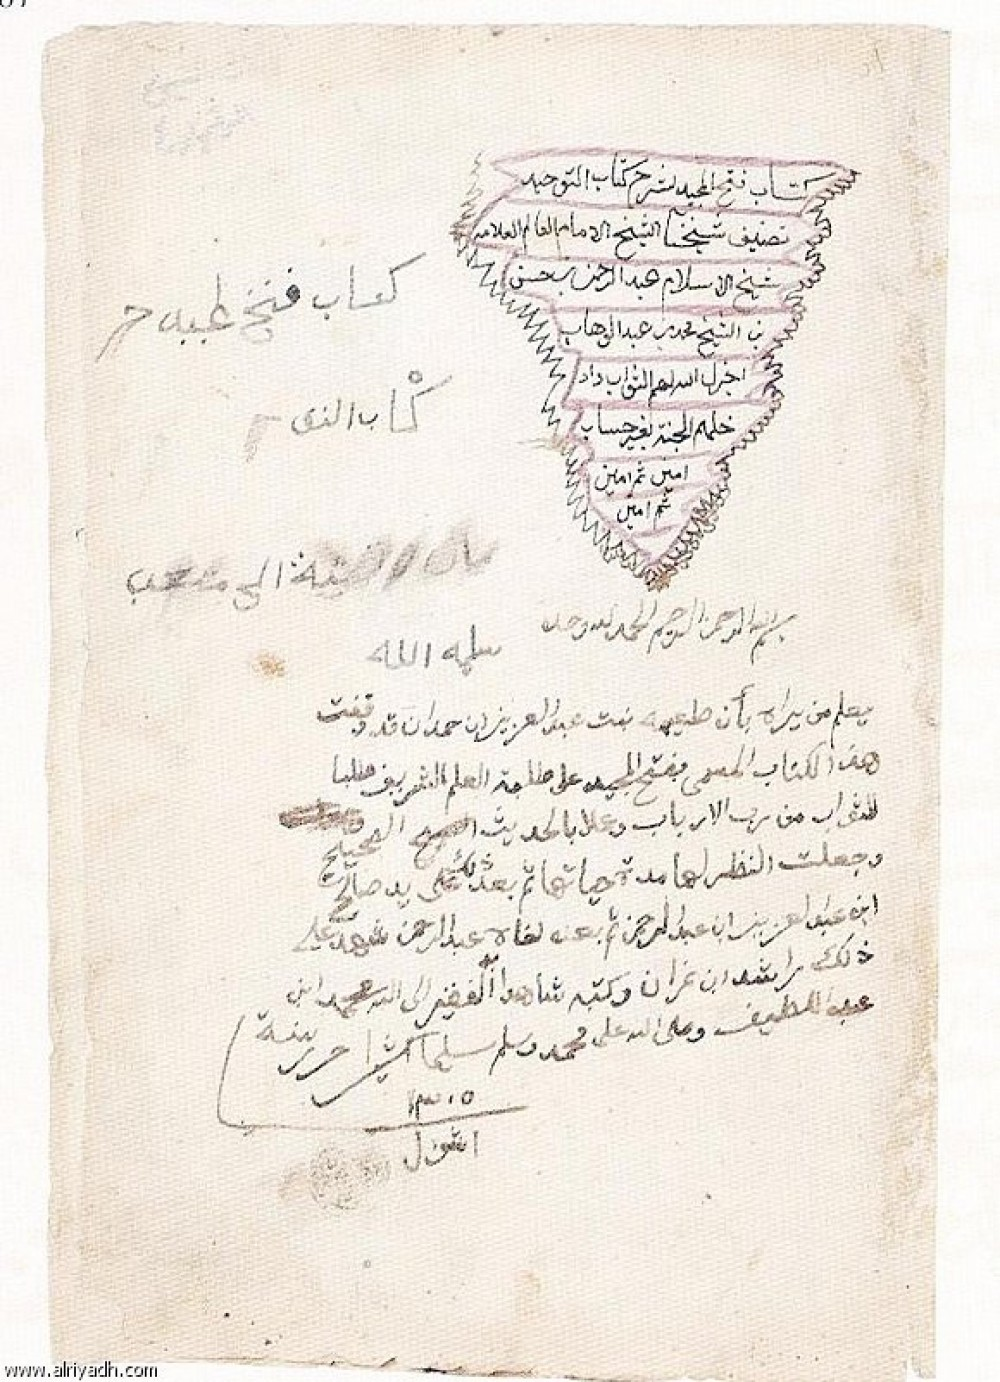 كتاب فتح المجيد بشرح كتاب التوحيد
تصنيف شيخنا الشيخ الامام العالم العلامه
شيخ الاسلام عبد الرحمن بن حسن
بن الشيخ محمد بن عبد الوهاب
اجزل الله لهم الثواب واد
خلهم الجنة بغير حساب
امين ثم امين
ثم امين
كتاب فتح
كتاب
بسم الله الرحمن الرحيم الحمد لله وحده
سلمه الله
يعلم من يراه بأن طعيمه بنت عبد العزيز ابن حمدان قد وقفت
هذا الكتاب المسمى بفتح المجيد على طلبة العلم الشريف طلبا
للثواب من رب الارباب وعملا بالحديث الصحيح
وجعلت النظر لها مدة حياتها ثم بعد ذلك على يد صالح
ابن عبد العزيز ابن عبد الرحمن ثم بعده لخاه عبد الرحمن شهد على
ذلك راشد ابن غزان وكتبه شاهدا الفقير الى الله محمد ابن
عبد اللطيف وصلى الله على محمد وسلم
١٣٠٥
www.alriyadh.com